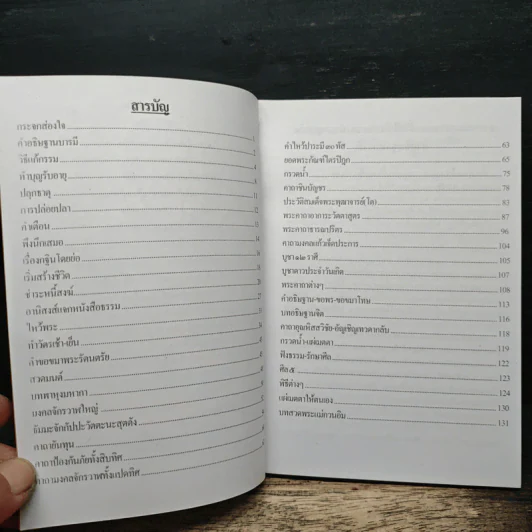 สารบัญ
กระจกส่องใจ 1
คำอธิษฐานบารมี 2
วิธีแก้กรรม 4
ทำบุญรับอายุ 8
ปลุกธาตุ 11
การปล่อยปลา 12
คำเตือน 13
พึงนึกเสมอ 14
เรื่องกฐินโดยย่อ
เริ่มสร้างชีวิต
ชำระหนี้สงฆ์
อานิสงส์แจกหนังสือธรรม
ไหว้พระ
ทำวัตรเช้า-เย็น
คำขอขมาพระรัตนตรัย
สวดมนต์
บทพาหุงมหากา
มงคลจักรวาฬใหญ่
ธัมมะจักกัปปะวัตตะนะสุตตัง
คาถายันทุน
คาถาป้องกันภัยทั้งสิบทิศ
คาถามงคลจักรวาฬทั้งแปดทิศ
คำไหว้บารมี ๓๐ ทัส 63
ยอดพระกัณฑ์ไตรปิฎก 65
กรวดน้ำ 75
คาถาชินบัญชร 78
ประวัติสมเด็จพระพุฒาจารย์(โต) 83
พระคาถาอาการะวัตตาสูตร 87
พระคาถาธารณปริตร 96
คาถามงคลแก้วเจ็ดประการ 104
บูชา ๑๒ ราศี 105
บูชาดาวประจำวันเกิด 107
พระคาถาต่างๆ 108
คำอธิษฐาน-ขอพร-ขอขมาโทษ 113
บทอธิษฐานจิต 116
คาถาอุณหิสสวิชัย-อัญเชิญเทวดากลับ 118
กรวดน้ำ-แผ่เมตตา 119
ฟังธรรม-รักษาศีล 122
ศีล ๕ 123
พิธีต่างๆ 124
แผ่เมตตาให้ตนเอง 130
บทสวดพระแม่กวนอิม 131